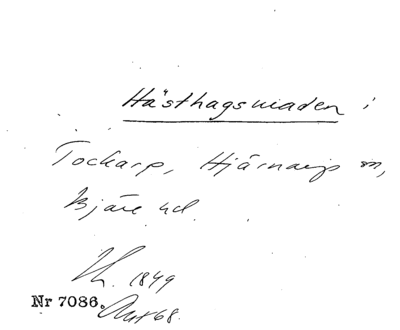 Hästhagsmaden i
Tockarp, Hjärnarp sn,
Bjäre hd.
1849
Nr 7086.